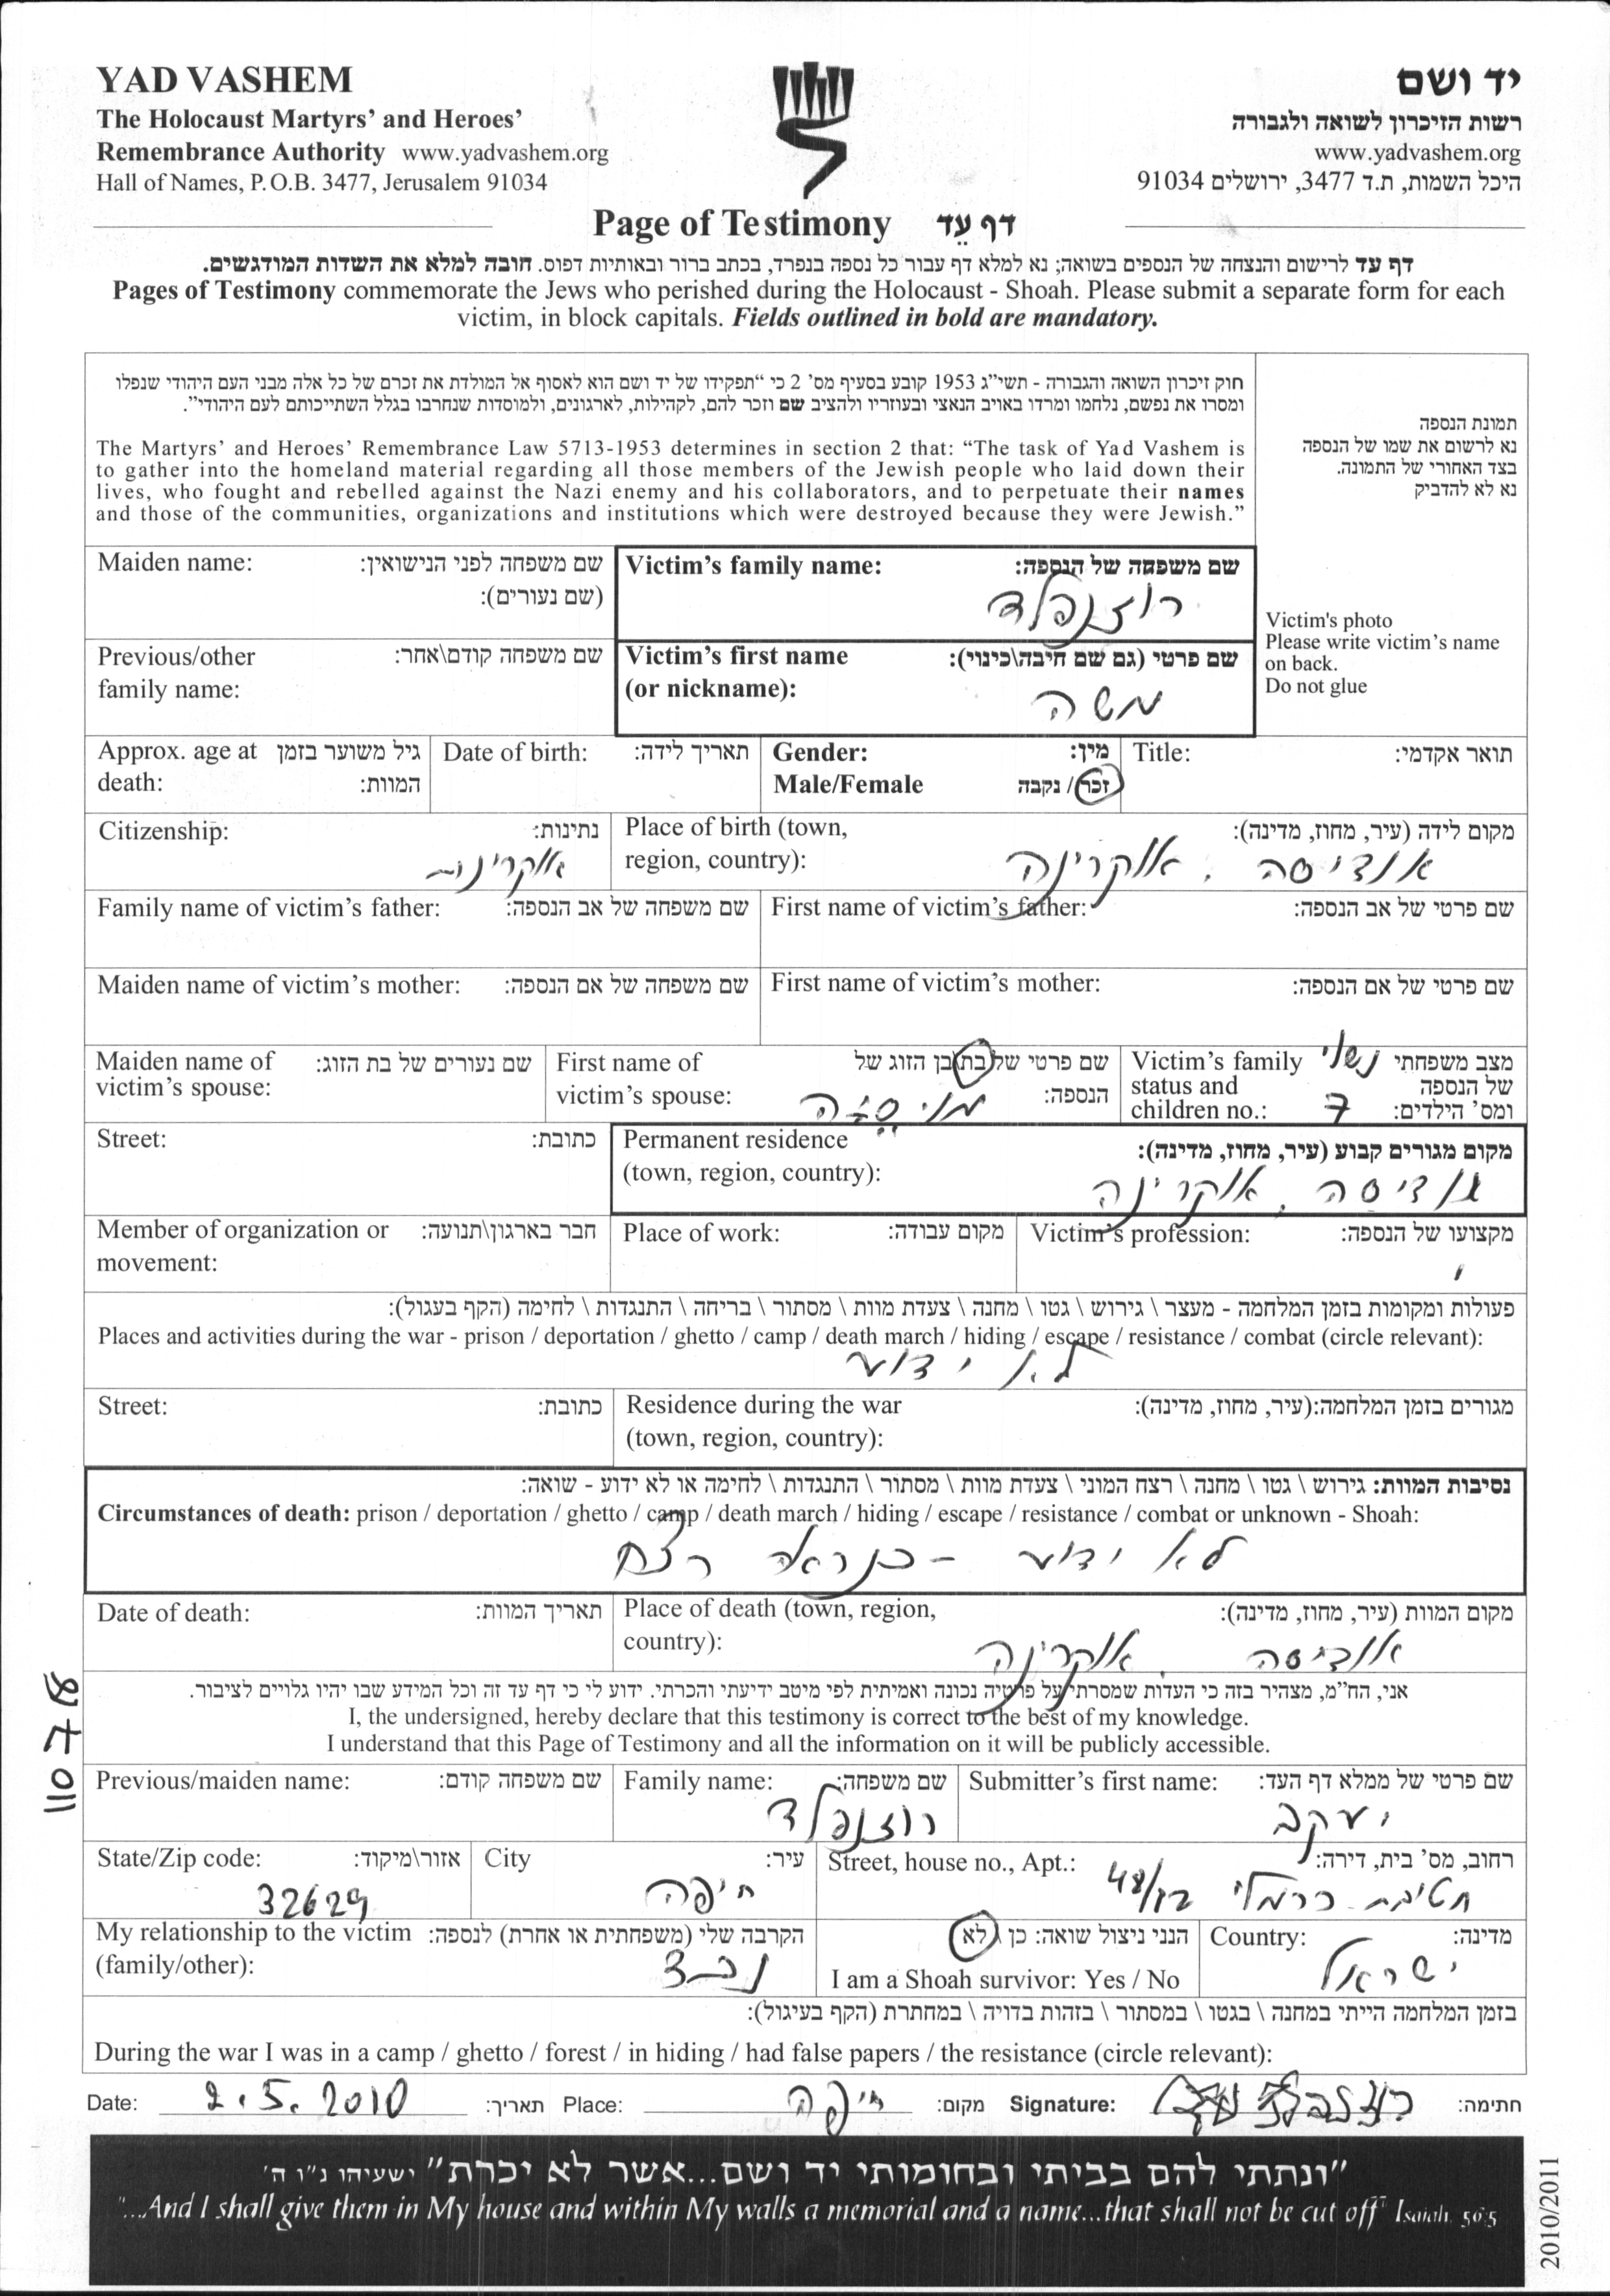 YAD VASHEM
The Holocaust Martyrs' and Heroes'
Remembrance Authority www.yadvashem.org
Hall of Names, P.O.B. 3477, Jerusalem 91034
יד ושם
רשות הזיכרון לשואה ולגבורה
www.yadvashem.org
היכל השמות, ת.ד 3477, ירושלים 91034
Page of Testimony דף עֵד
דף עד לרישום והנצחה של הנספים בשואה; נא למלא דף עבור כל נספה בנפרד, בכתב ברור ובאותיות דפוס. חובה למלא את השדות המודגשים.
Pages of Testimony commemorate the Jews who perished during the Holocaust - Shoah. Please submit a separate form for each
victim, in block capitals. Fields outlined in bold are mandatory.
חוק זיכרון השואה והגבורה - תשי"ג 1953 קובע בסעיף מס' 2 כי "תפקידו של יד ושם הוא לאסוף אל המולדת את זכרם של כל אלה מבני העם היהודי שנפלו
ומסרו את נפשם, נלחמו ומרדו באויב הנאצי ובעוזריו ולהציב שם וזכר להם, לקהילות, לארגונים, ולמוסדות שנחרבו בגלל השתייכותם לעם היהודי".
The Martyrs' and Heroes' Remembrance Law 5713-1953 determines in section 2 that: "The task of Yad Vashem is
to gather into the homeland material regarding all those members of the Jewish people who laid down their
lives, who fought and rebelled against the Nazi enemy and his collaborators, and to perpetuate their names
and those of the communities, organizations and institutions which were destroyed because they were Jewish."
תמונת הנספה
נא לרשום את שמו של הנספה
בצד האחורי של התמונה.
נא לא להדביק
Victim's photo
Please write victim's name
on back.
Do not glue
Maiden name: שם משפחה לפני הנישואין:
(שם נעורים):
Victim's family name: שם משפחה של הנספה:
רוזנפלד
Previous/other שם משפחה קודם\אחר:
family name:
Victim's first name שם פרטי (גם שם חיבה\כינוי):
(or nickname):
משה
Approx. age at גיל משוער בזמן
death: המוות:
Date of birth: תאריך לידה:
Gender: מין:
Male/Female זכר / נקבה
Title: תואר אקדמי:
Citizenship: נתינות:
אוקרינית
Place of birth (town, מקום לידה (עיר, מחוז, מדינה):
region, country):
אודיסה, אוקרינה
Family name of victim's father: שם משפחה של אב הנספה:
First name of victim's father: שם פרטי של אב הנספה:
Maiden name of victim's mother: שם משפחה של אם הנספה:
First name of victim's mother: שם פרטי של אם הנספה:
Maiden name of שם נעורים של בת הזוג:
victim's spouse:
First name of שם פרטי של בת\בן הזוג של
victim's spouse: הנספה:
Victim's family מצב משפחתי נשוי
status and של הנספה
children no.: 7 ומס' הילדים:
Street: כתובת:
Permanent residence מקום מגורים קבוע (עיר, מחוז, מדינה):
(town, region, country):
אודיסה, אוקרינה
Member of organization or חבר בארגון\תנועה:
movement:
Place of work: מקום עבודה:
Victim's profession: מקצועו של הנספה:
פעולות ומקומות בזמן המלחמה - מעצר \ גירוש \ גטו \ מחנה \ צעדת מוות \ מסתור \ בריחה \ התנגדות \ לחימה (הקף בעגול):
Places and activities during the war - prison / deportation / ghetto / camp / death march / hiding / escape / resistance / combat (circle relevant):
לא ידוע
Street: כתובת:
Residence during the war מגורים בזמן המלחמה:(עיר, מחוז, מדינה):
(town, region, country):
נסיבות המוות: גירוש \ גטו \ מחנה \ רצח המוני \ צעדת מוות \ מסתור \ התנגדות \ לחימה או לא ידוע - שואה:
Circumstances of death: prison / deportation / ghetto / camp / death march / hiding / escape / resistance / combat or unknown - Shoah:
לא ידוע - כנראה רצח
Date of death: תאריך המוות:
Place of death (town, region, מקום המוות (עיר, מחוז, מדינה):
country):
אודיסה, אוקרינה
אני, הח"מ, מצהיר בזה כי העדות שמסרתי על פרטיה נכונה ואמיתית לפי מיטב ידיעתי והכרתי. ידוע לי כי דף עד זה וכל המידע שבו יהיו גלויים לציבור.
I, the undersigned, hereby declare that this testimony is correct to the best of my knowledge.
I understand that this Page of Testimony and all the information on it will be publicly accessible.
Previous/maiden name: שם משפחה קודם:
Family name: שם משפחה:
רוזנפלד
Submitter's first name: שם פרטי של ממלא דף העד:
יעקב
State/Zip code: אזור\מיקוד:
32629
City עיר:
חיפה
Street, house no., Apt.: רחוב, מס' בית, דירה:
חטיבת כרמלי 48/12
My relationship to the victim הקרבה שלי (משפחתית או אחרת) לנספה:
(family/other):
נכד
הנני ניצול שואה: כן \ לא
I am a Shoah survivor: Yes / No
Country: מדינה:
ישראל
בזמן המלחמה הייתי במחנה \ בגטו \ במסתור \ בזהות בדויה \ במחתרת (הקף בעיגול):
During the war I was in a camp / ghetto / forest / in hiding / had false papers / the resistance (circle relevant):
Date: 2.5.2010 תאריך: Place: חיפה מקום: Signature: חתימה:
"ונתתי להם בביתי ובחומותי יד ושם...אשר לא יכרת" ישעיהו נ"ו ה'
"...And I shall give them in My house and within My walls a memorial and a name...that shall not be cut off" Isaiah 56:5
2010/2011